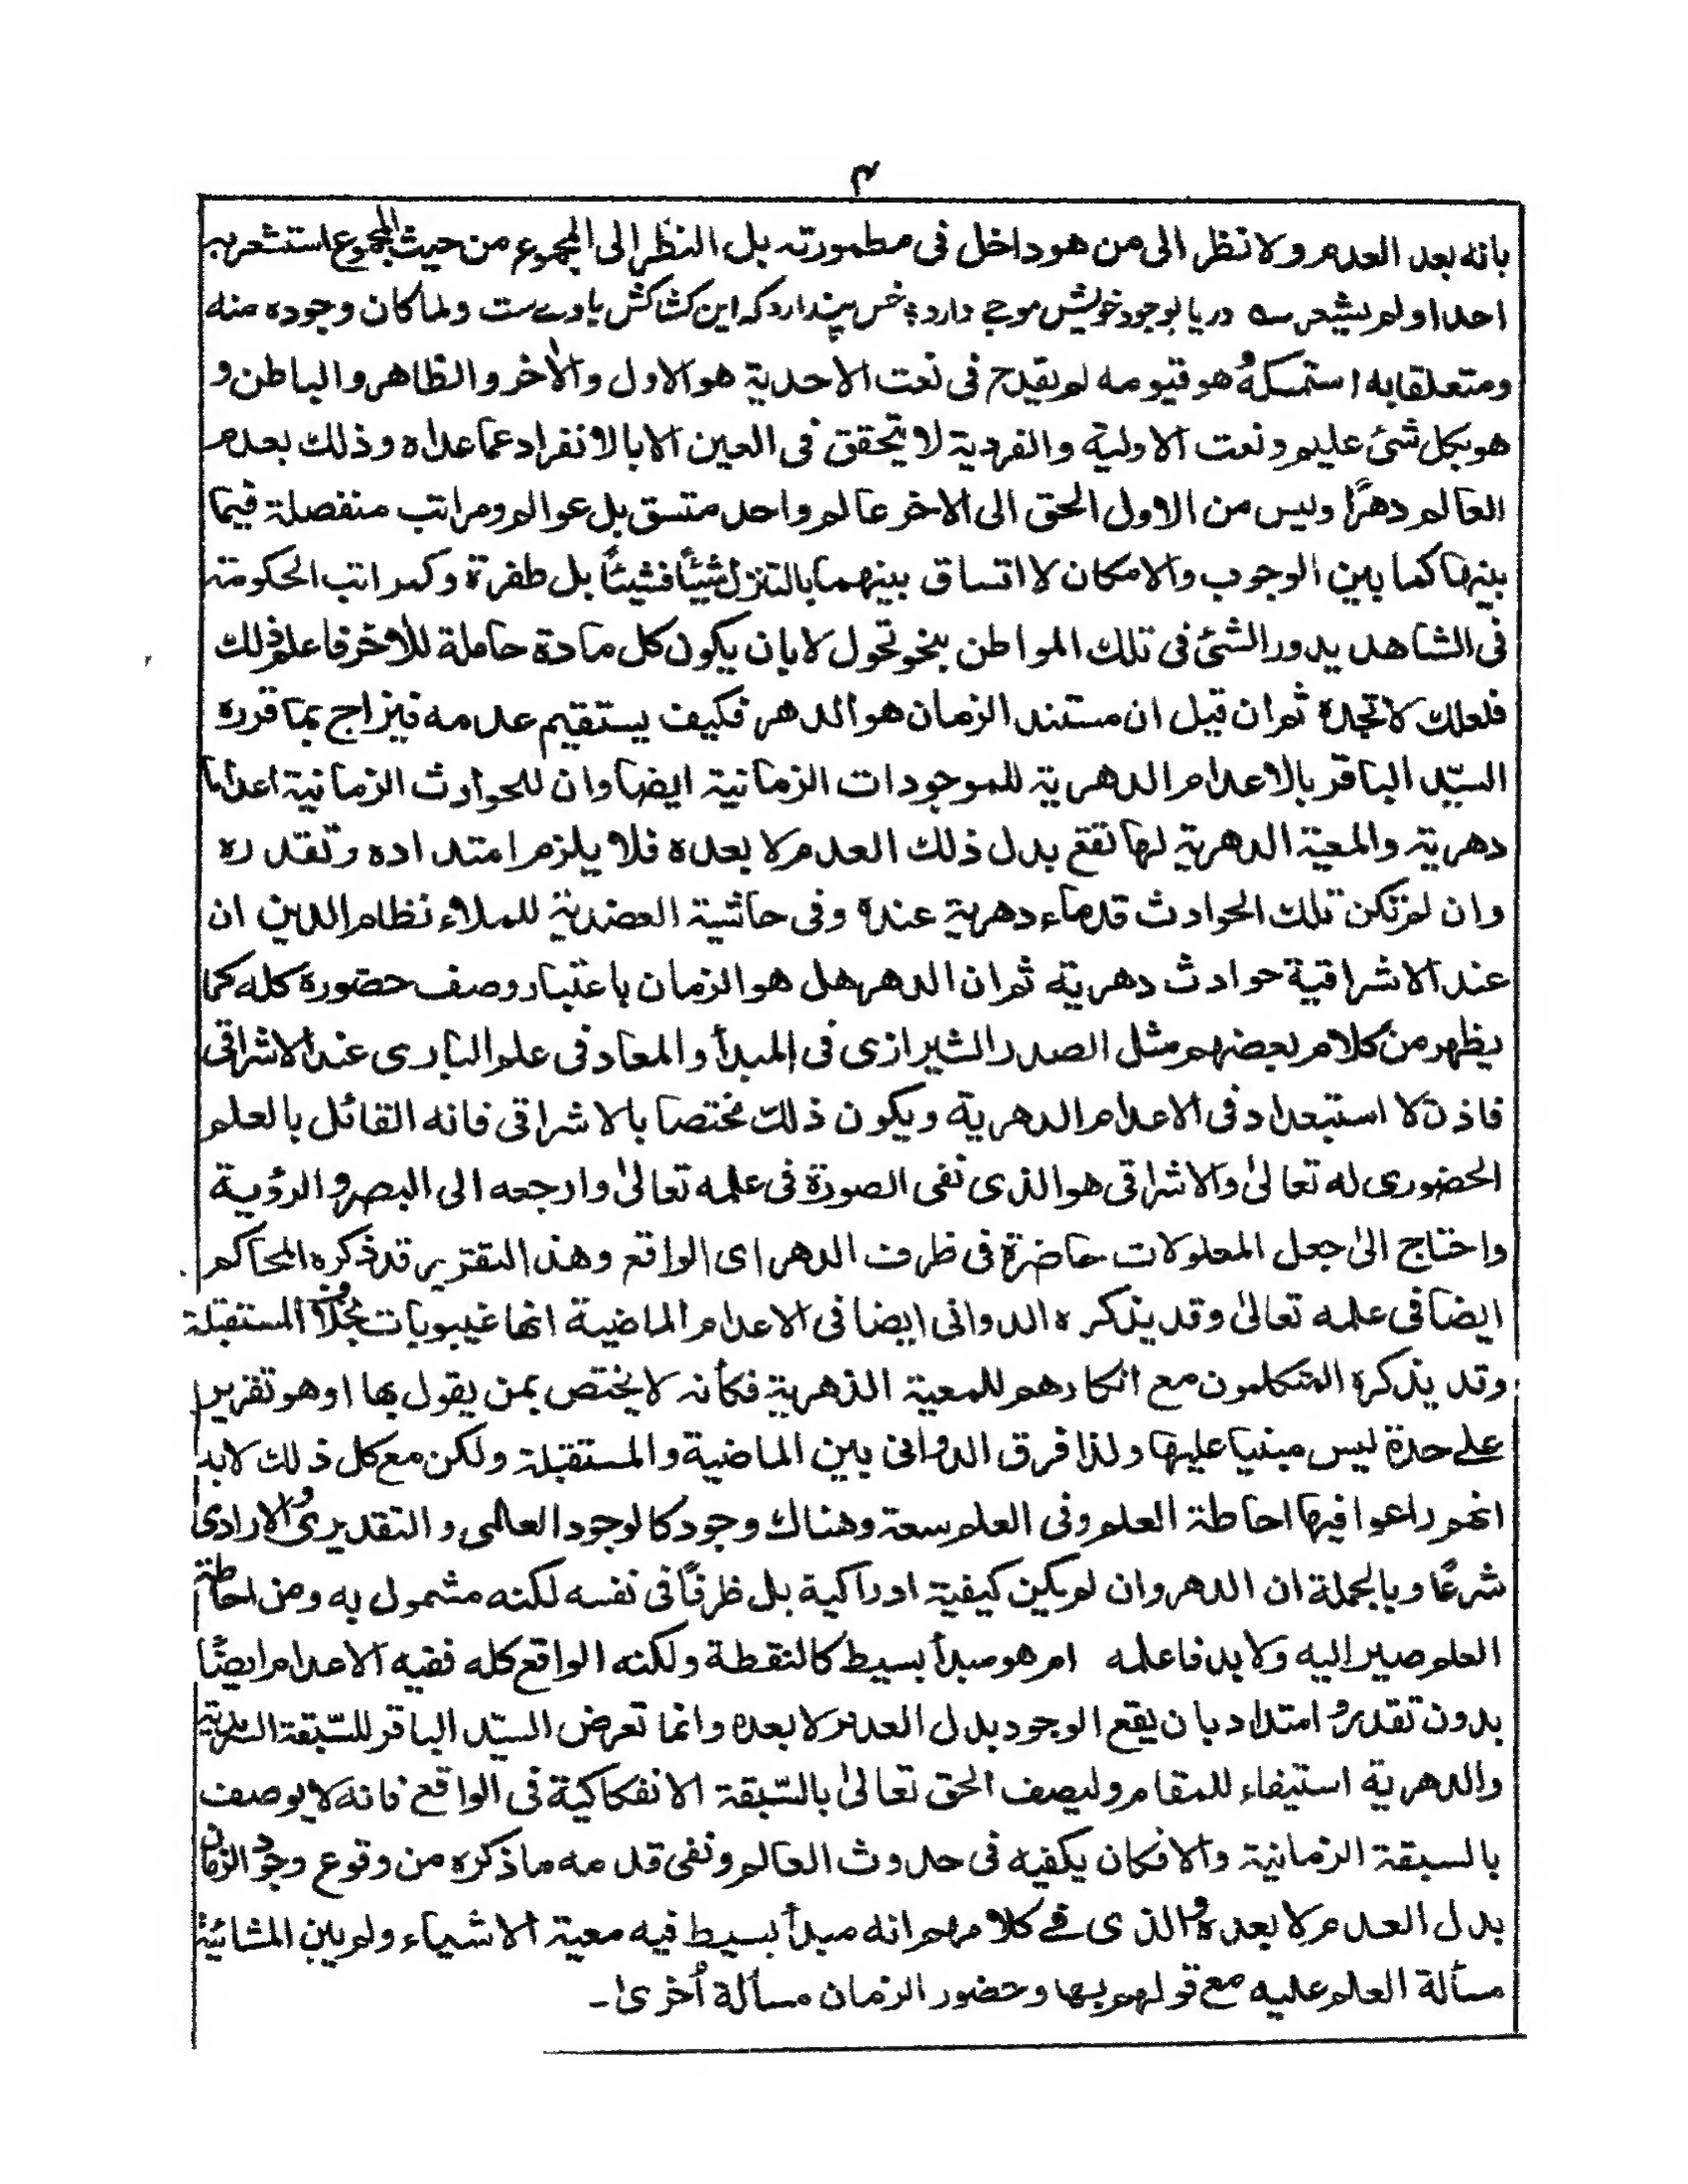 ٣
بانه بعد العدم ولا نظر الى من هو داخل فى مطمورته بل النظر الى المجموع من حيث المجموع استشعر به
احد او لم يشعر ـه دريا بوجود خويش موجے دارد ؛ خس پندارد كه اين كشاكش با وے ست ولما كان وجوده منه
ومتعلقا به استمسكه وهو قيومه لم يقدح فى نعت الاحدية هو الاول والأخر والظاهر والباطن و
هو بكل شئ عليم ونعت الاولية والفردية لا يتحقق فى العين الا بالانفراد عما عداه وذلك بعدم
العالم دهرًا وليس من الاول الحق الى الاخر عالم واحد متسق بل عوالم ومراتب منفصلة فيما
بينها كما بين الوجوب والامكان لا اتساق بينهما بالتنزل شيئًا فشيئًا بل طفرة وكمراتب الحكومة
فى الشاهد يدور الشئ فى تلك المواطن بنحو تحول لا بان يكون كل مادة حاملة للأخر فاعلم ذلك
فلعلك لا تجده ثم ان قيل ان مستند الزمان هو الدهر فكيف يستقيم عدمه فيزاح بما قرره
السيّد الباقر بالاعدام الدهرية للموجودات الزمانية ايضا وان للحوادث الزمانية اعداما
دهرية والمعية الدهرية لها تقع بدل ذلك العدم لا بعده فلا يلزم امتداده وتقدره
وان لم تكن تلك الحوادث قدماء دهرية عنده وفى حاشية العضدية للملاء نظام الدين ان
عند الاشراقية حوادث دهرية ثم ان الدهر هل هو الزمان باعتبار وصف حضوره كله كما
يظهر من كلام بعضهم مثل الصدر الشيرازى فى المبدأ والمعاد فى علم البارى عند الاشراقى
فاذن لا استبعاد فى الاعدام الدهرية ويكون ذلك مختصا بالاشراقى فانه القائل بالعلم
الحضورى له تعالىٰ والاشراقى هو الذى نفى الصورة فى علمه تعالىٰ وارجعه الى البصر والرؤية
واحتاج الىٰ جعل المعلولات حاضرة فى ظرف الدهر اى الواقع وهذا التقرير قد ذكره المحاكم
ايضا فى علمه تعالىٰ وقد يذكره الدوانى ايضا فى الاعدام الماضية انها غيبوبات بخلاف المستقبلة
وقد يذكره المتكلمون مع انكارهم للمعية الدهرية فكأنه لا يختص بمن يقول بها او هو تقرير
علے حدة ليس مبنيا عليها ولذا فرق الدوانى بين الماضية والمستقبلة ولكن مع كل ذلك لابد
انهم راعوا فيها احاطة العلم وفى العلم سعة وهناك وجود كالوجود العلمى والتقديرى والارادى
شرعًا وبالجملة ان الدهر وان لم يكن كيفية ادراكية بل ظرفًا فى نفسه لكنه مشمول به ومن احاطة
العلم صير اليه ولا بد فاعلمه ام هو مبدأ بسيط كالنقطة ولكنه الواقع كله ففيه الاعدام ايضًا
بدون تقدر وامتداد بان يقع الوجود بدل العدم لا بعده وانما تعرض السيّد الباقر للسّبقة السرمدية
والدهرية استيفاء للمقام وليصف الحق تعالىٰ بالسّبقة الانفكاكية فى الواقع فانه لا يوصف
بالسبقة الزمانية والا فكان يكفيه فى حدوث العالم ونفى قدمه ما ذكره من وقوع وجود الزمان
بدل العدم لا بعده والذى فے كلامهم انه مبدأ بسيط فيه معية الاشياء ولم يبن المشائية
مسألة العلم عليه مع قولهم بها وحضور الزمان مسألة أخرىٰ ـ